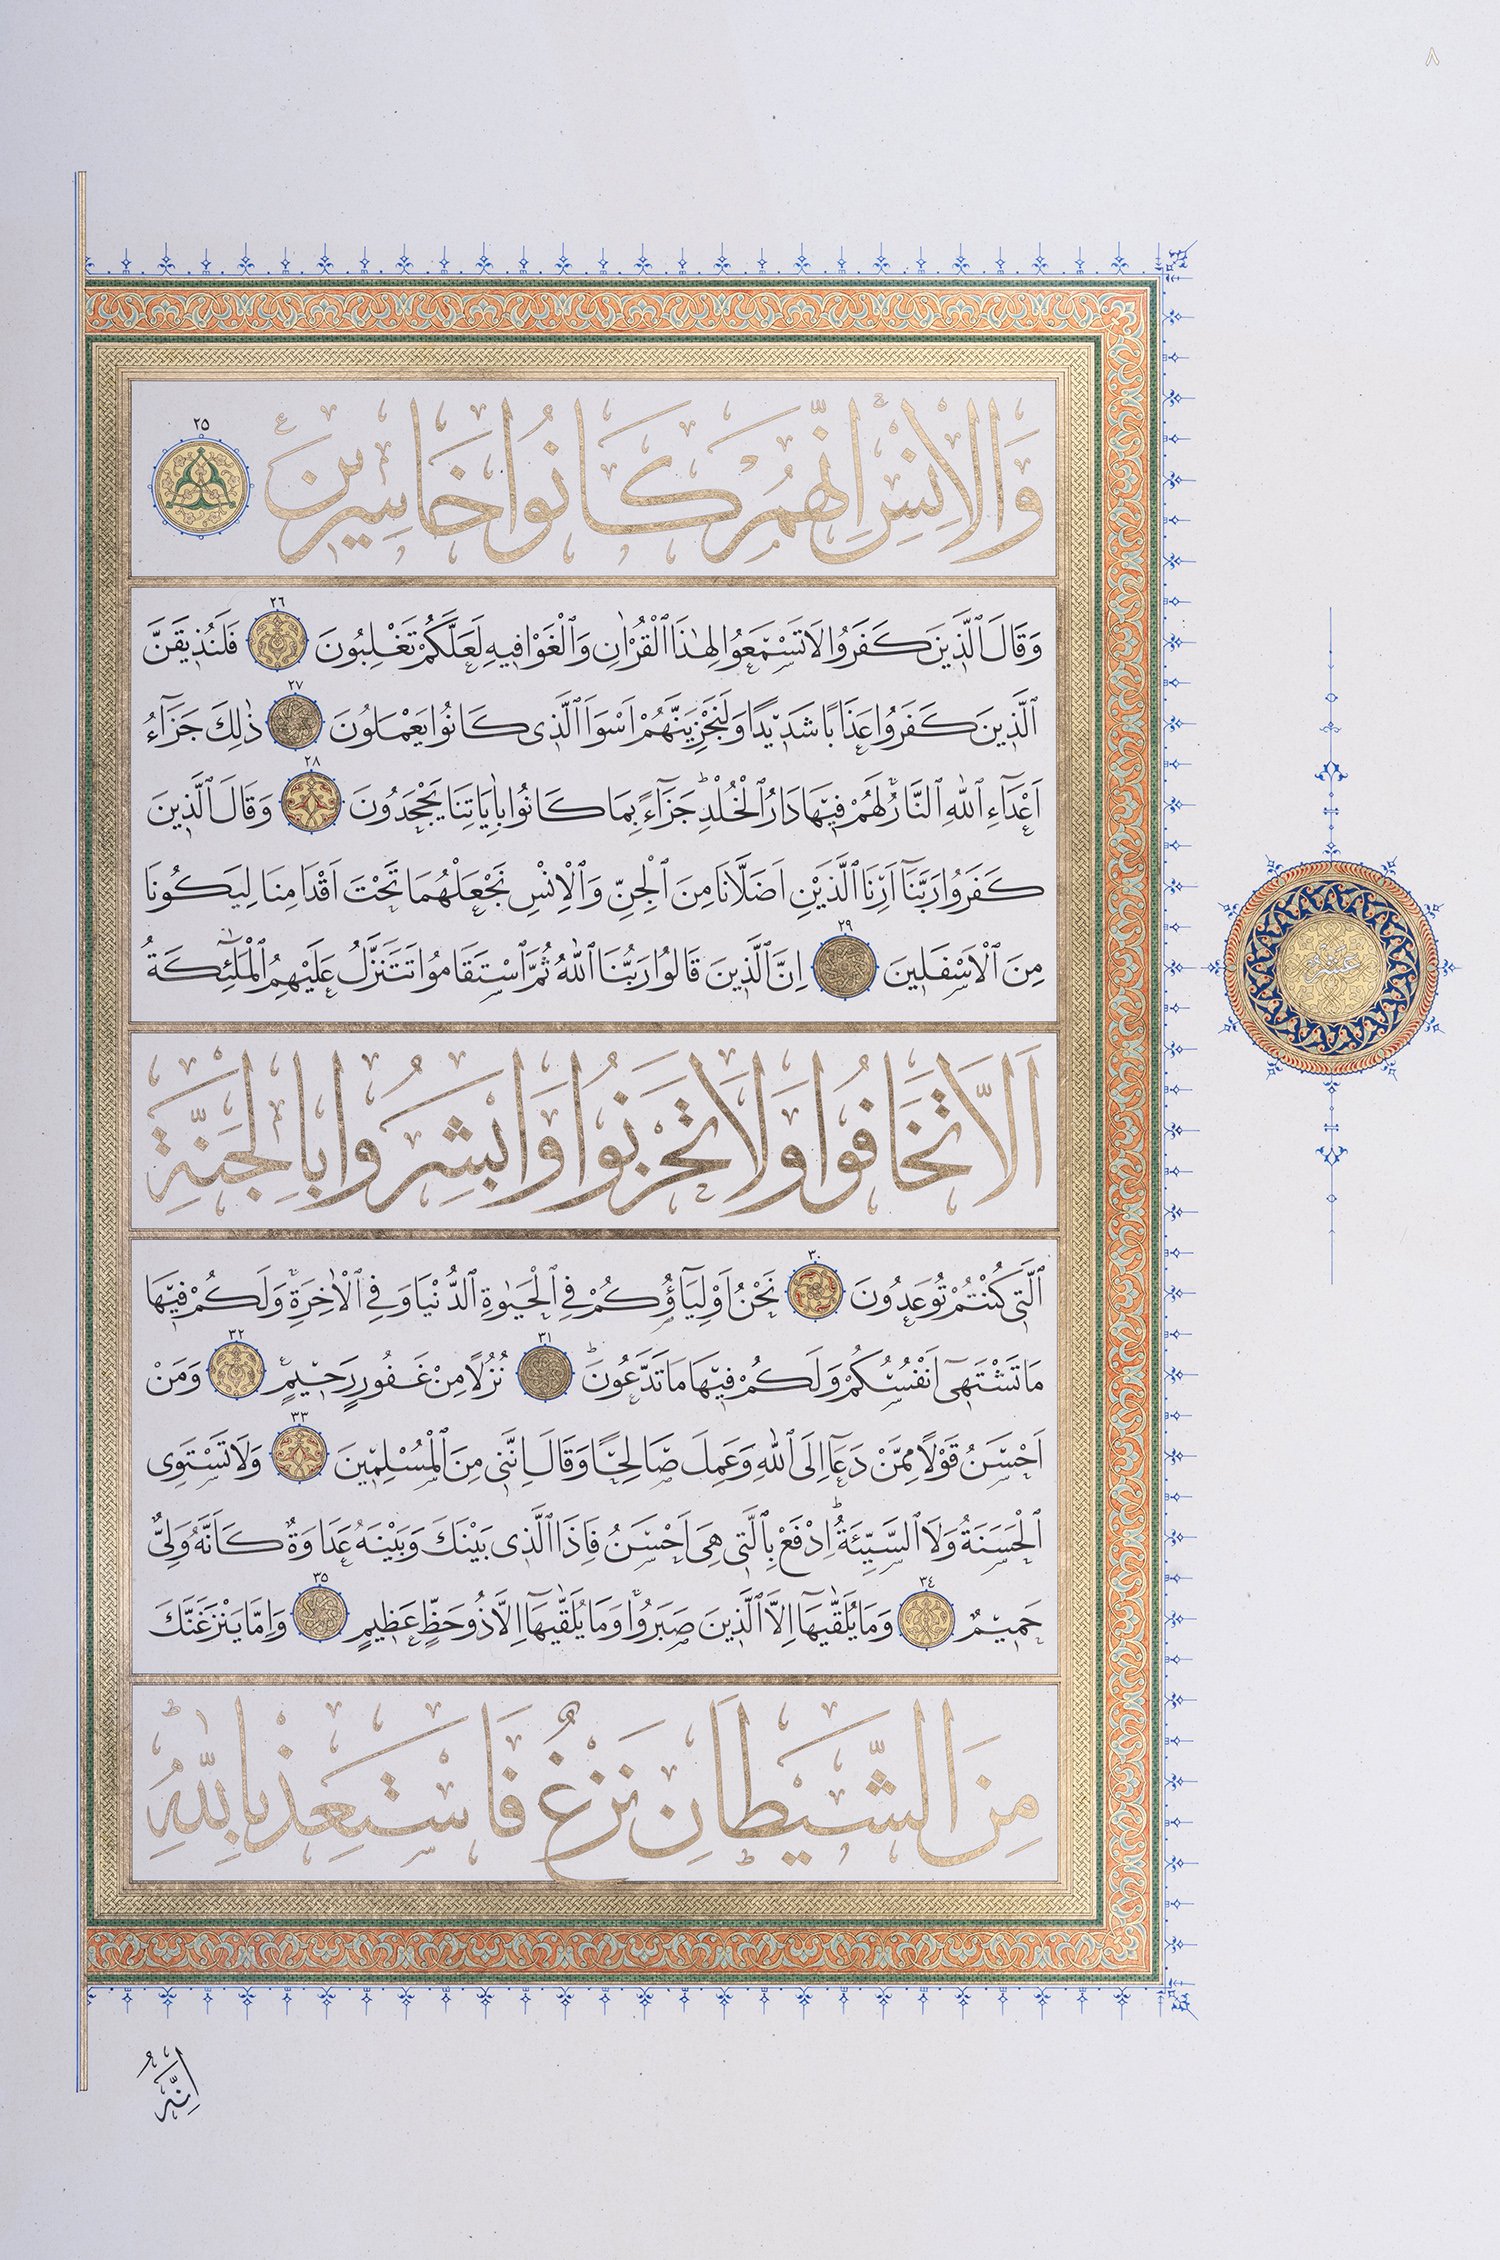 ٨
وَالْاِنْسِ اِنَّهُمْ كَانُوا خَاسِرِينَ ٢٥
وَقَالَ ٱلَّذِينَ كَفَرُوا لَا تَسْمَعُوا لِهٰذَا ٱلْقُرْاٰنِ وَٱلْغَوْا فِيهِ لَعَلَّكُمْ تَغْلِبُونَ ٢٦ فَلَنُذِيقَنَّ
ٱلَّذِينَ كَفَرُوا عَذَابًا شَدِيدًا وَلَنَجْزِيَنَّهُمْ اَسْوَاَ ٱلَّذِى كَانُوا يَعْمَلُونَ ٢٧ ذٰلِكَ جَزَٓاءُ
اَعْدَٓاءِ ٱللّٰهِ ٱلنَّارُۚ لَهُمْ فِيهَا دَارُ ٱلْخُلْدِۜ جَزَٓاءً بِمَا كَانُوا بِاٰيَاتِنَا يَجْحَدُونَ ٢٨ وَقَالَ ٱلَّذِينَ
كَفَرُوا رَبَّنَٓا اَرِنَا ٱلَّذَيْنِ اَضَلَّانَا مِنَ ٱلْجِنِّ وَٱلْاِنْسِ نَجْعَلْهُمَا تَحْتَ اَقْدَامِنَا لِيَكُونَا
مِنَ ٱلْاَسْفَلِينَ ٢٩ اِنَّ ٱلَّذِينَ قَالُوا رَبُّنَا ٱللّٰهُ ثُمَّ ٱسْتَقَامُوا تَتَنَزَّلُ عَلَيْهِمُ ٱلْمَلٰٓئِكَةُ
اَلَّا تَخَافُوا وَلَا تَحْزَنُوا وَاَبْشِرُوا بِالْجَنَّةِ
ٱلَّتِى كُنْتُمْ تُوعَدُونَ ٣٠ نَحْنُ اَوْلِيَٓاؤُكُمْ فِى ٱلْحَيٰوةِ ٱلدُّنْيَا وَفِى ٱلْاٰخِرَةِۚ وَلَكُمْ فِيهَا
مَا تَشْتَهِٓى اَنْفُسُكُمْ وَلَكُمْ فِيهَا مَا تَدَّعُونَۜ ٣١ نُزُلًا مِنْ غَفُورٍ رَحِيمٍ ٣٢ وَمَنْ
اَحْسَنُ قَوْلًا مِمَّنْ دَعَٓا اِلَى ٱللّٰهِ وَعَمِلَ صَالِحًا وَقَالَ اِنَّنِى مِنَ ٱلْمُسْلِمِينَ ٣٣ وَلَا تَسْتَوِى
ٱلْحَسَنَةُ وَلَا ٱلسَّيِّئَةُۜ اِدْفَعْ بِٱلَّتِى هِىَ اَحْسَنُ فَاِذَا ٱلَّذِى بَيْنَكَ وَبَيْنَهُ عَدَاوَةٌ كَاَنَّهُ وَلِىٌّ
حَمِيمٌ ٣٤ وَمَا يُلَقّٰيهَٓا اِلَّا ٱلَّذِينَ صَبَرُواۚ وَمَا يُلَقّٰيهَٓا اِلَّا ذُو حَظٍّ عَظِيمٍ ٣٥ وَاِمَّا يَنْزَغَنَّكَ
مِنَ الشَّيْطَانِ نَزْغٌ فَاسْتَعِذْ بِاللّٰهِۜ
عشر
اِنَّهُ